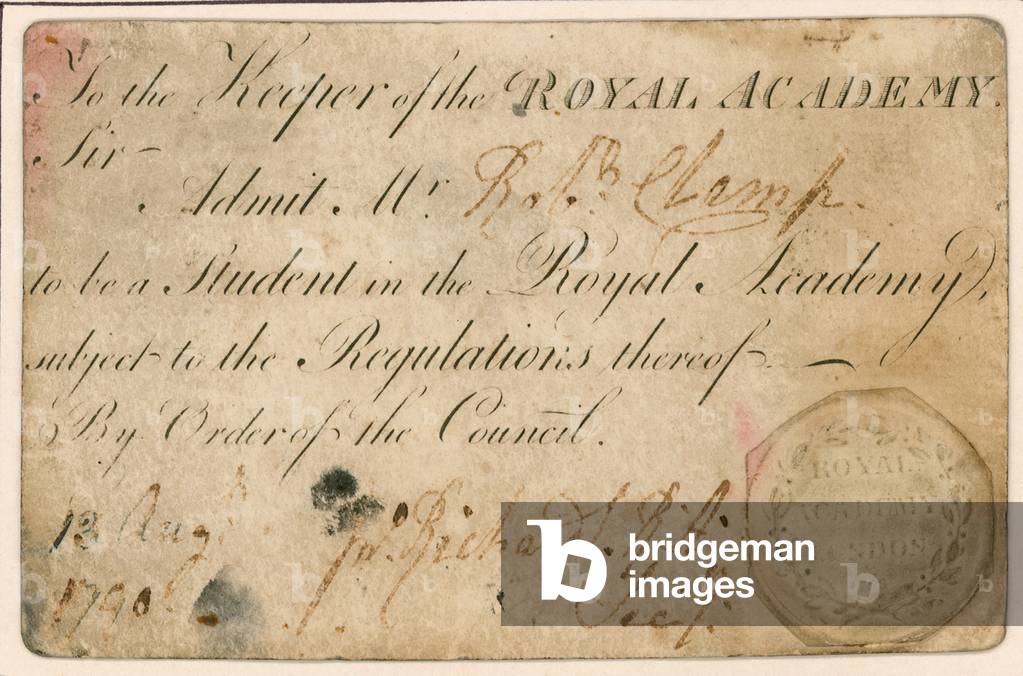 To the Keeper of the ROYAL ACADEMY.
Sir
Admit Mr. Robt. Clamp.
to be a Student in the Royal Academy,
subject to the Regulations thereof
By Order of the Council.
13 Augt.
1790
ROYAL
ACADEMY
LONDON
bridgeman
images